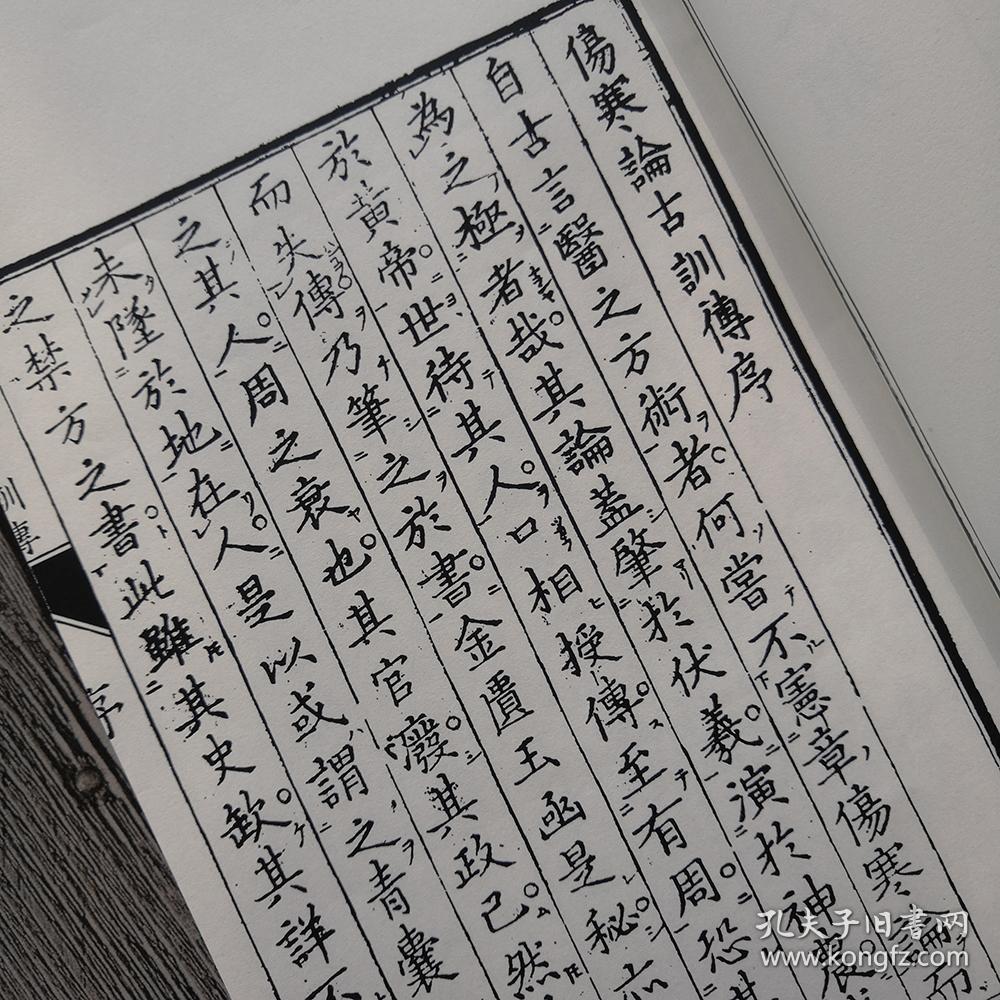 傷寒論古訓傳序
自古言醫之方術者。何嘗不憲章傷寒論而
為之極者哉。其論蓋肇於伏羲。演於神農。
於黃帝。世待其人。口相授傳。至有周。恐其
而失傳。乃筆之於書。金匱玉函是秘。亦
之其人。周之衰也。其官廢。其政已。然
未墜於地。在人。是以或謂之青囊
之禁方之書。此雖其史缺。其詳不
訓傳
序
孔夫子旧書网
www.kongfz.com